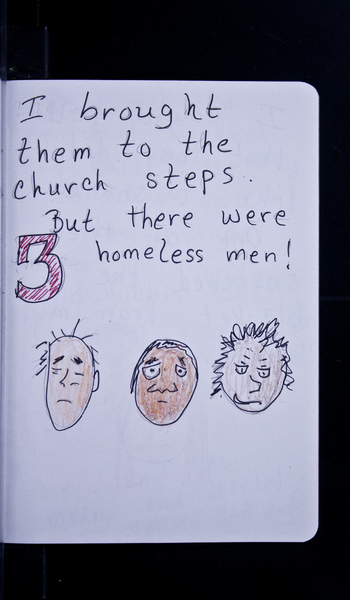 I brought
them to the
church steps.
But there were
3 homeless men!